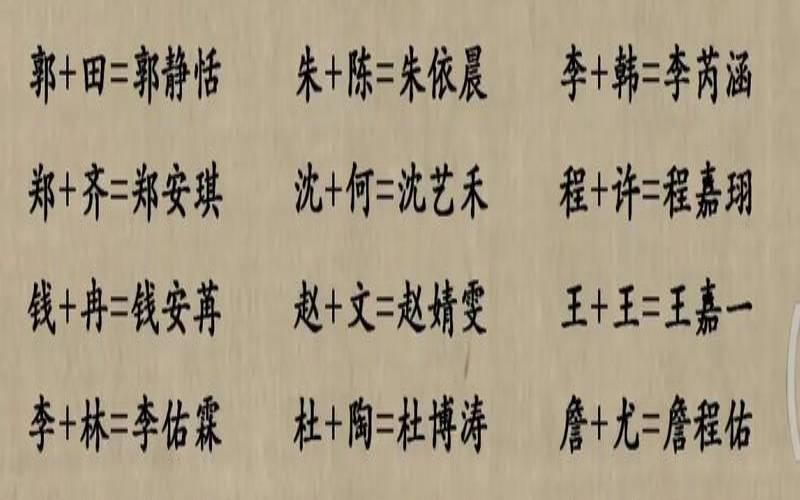 郭+田=郭静恬 朱+陈=朱依晨 李+韩=李芮涵
郑+齐=郑安琪 沈+何=沈艺禾 程+许=程嘉珝
钱+冉=钱安苒 赵+文=赵婧雯 王+王=王嘉一
李+林=李佑霖 杜+陶=杜博涛 詹+尤=詹程佑